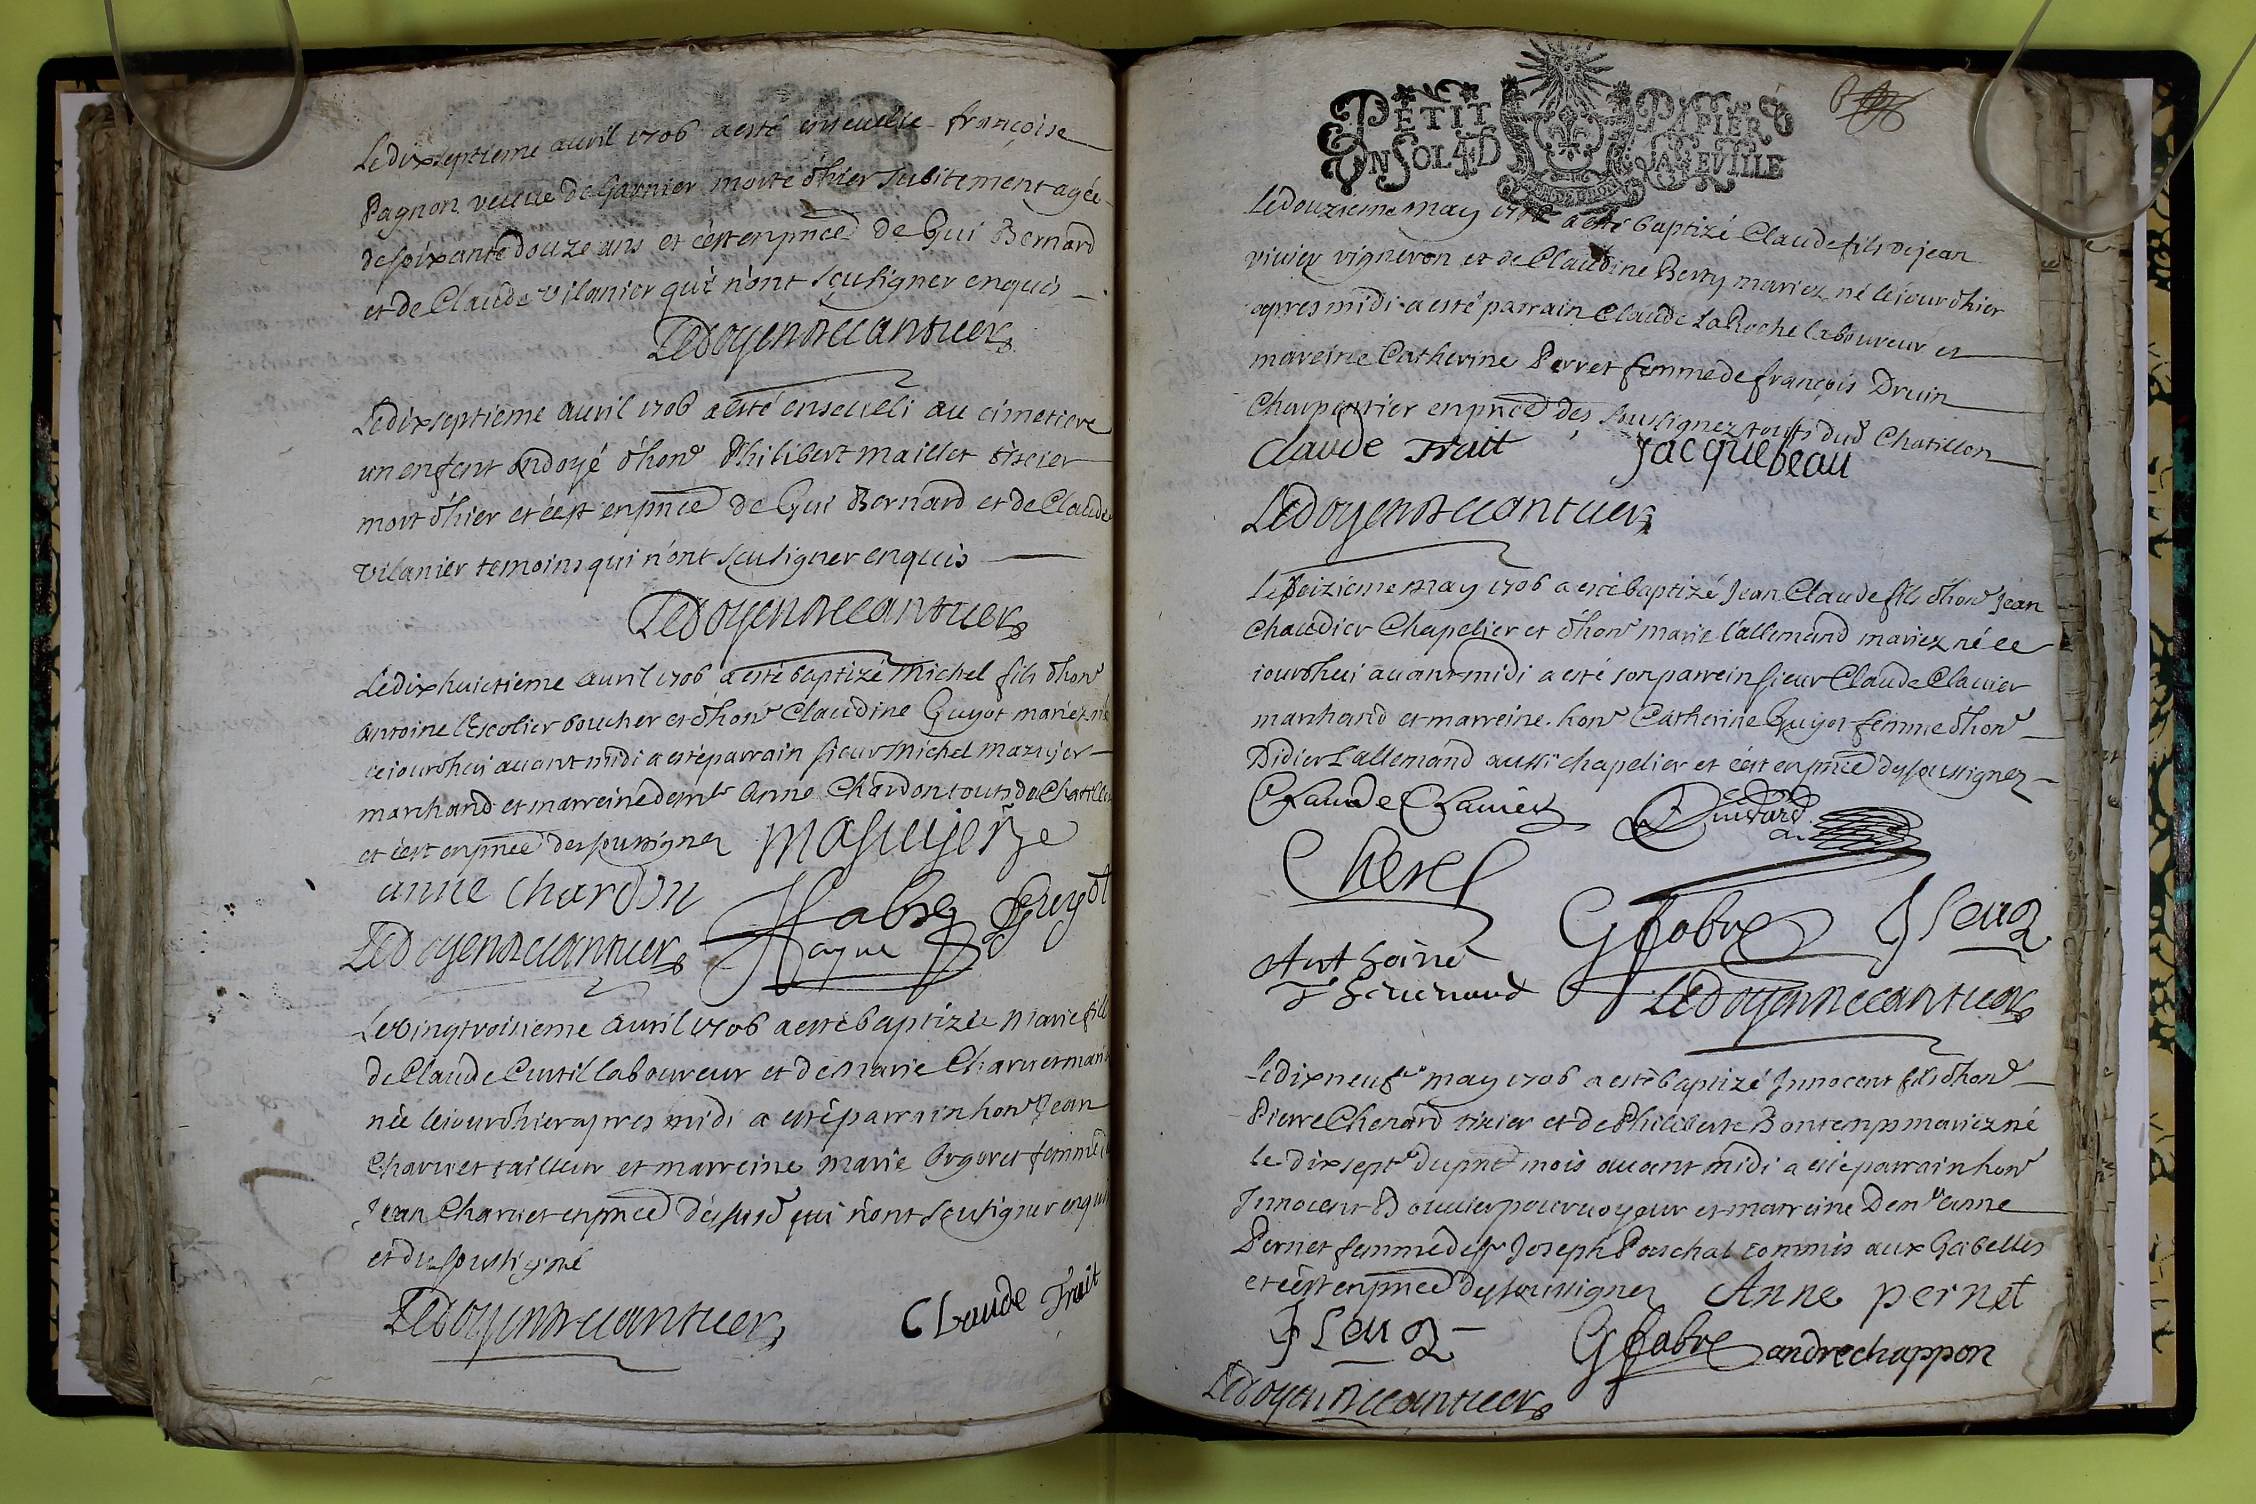 Le dixseptieme avril 1706 a esté ensevelie françoise
Pagnon veuve de Garnier morte d'hier subitement agée
de soixante douze ans et c'est en pnce de Gui Bernard
et de Claude Vilanier qui n'ont sçu signer enquis
Ledoyen
Le dixseptieme avril 1706 a esté enseveli au cimetiere
un enfent ondoyé d'hon Philibert maillet tixier
mort d'hier et c'est en pnce de Gui Bernard et de Claude
Vilanier temoins qui n'ont sçu signer enquis
Ledoyen
Le dixhuictieme avril 1706 a esté baptizé Michel fils d'hon
Antoine l'Escolier boucher et d'hon Claudine Guyot mariez né
ce iourd'hui avant midi a esté parrain sieur Michel Mazuyer
marchand et marreine demle Anne Chardon touts du Chatillon
et c'est en pnce des soussignez Masuyer
anne chardon fabre Guyot
Ledoyen
Le vingtroisieme avril 1706 a esté baptizée Marie fille
de Claude Curtil laboureur et de Marie Charvet mariez
née le iour d'hier apres midi a esté parrain hon Jean
Charvet tailleur et marreine Marie Orgeret femme de
Jean Charvet en pnce des susd qui n'ont sçu signer enquis
et du soussigné
Ledoyen Claude Trait
PETIT PAPIER
UN SOL 4 D LA FEVILLE
Le douzieme may 1706 a esté baptizé Claude fils de jean
vivier vigneron et de Claudine Berry mariez né le iour d'hier
apres midi a esté parrain Claude LaRoche laboureur et
mareine Catherine Perret femme de françois Druin
Charpentier en pnce des soussignez touts dud Chatillon
Claude Trait Jacquebeau
Ledoyen
Le seizieme may 1706 a esté baptizé Jean Claude fils d'hon Jean
Chaudier Chapelier et d'hon marie l'allemand mariez né ce
iourd'hui avant midi a esté son parrein sieur Claude Clavier
marchand et marreine hon Catherine Guyot femme d'hon
Didier Lallemand aussi chapelier et c'est en pnce des soussignez
Claude Clavier
Cherel
Anthoine Gfabre
Ledoyen
Le dixneufe may 1706 a esté baptizé Innocent fils d'hon
Pierre Chenard tixier et de Philiberte Bontemps mariez né
le dixsepte du pnt mois avant midi a esté parrain hon
Innocent Bouvier pourvoyeur et marreine Demle Anne
Pernet femme de sr Joseph Paschal commis aux Gabelles
et c'est en pnce des soussignez Anne pernet
Gfabre andre chappon
Ledoyen